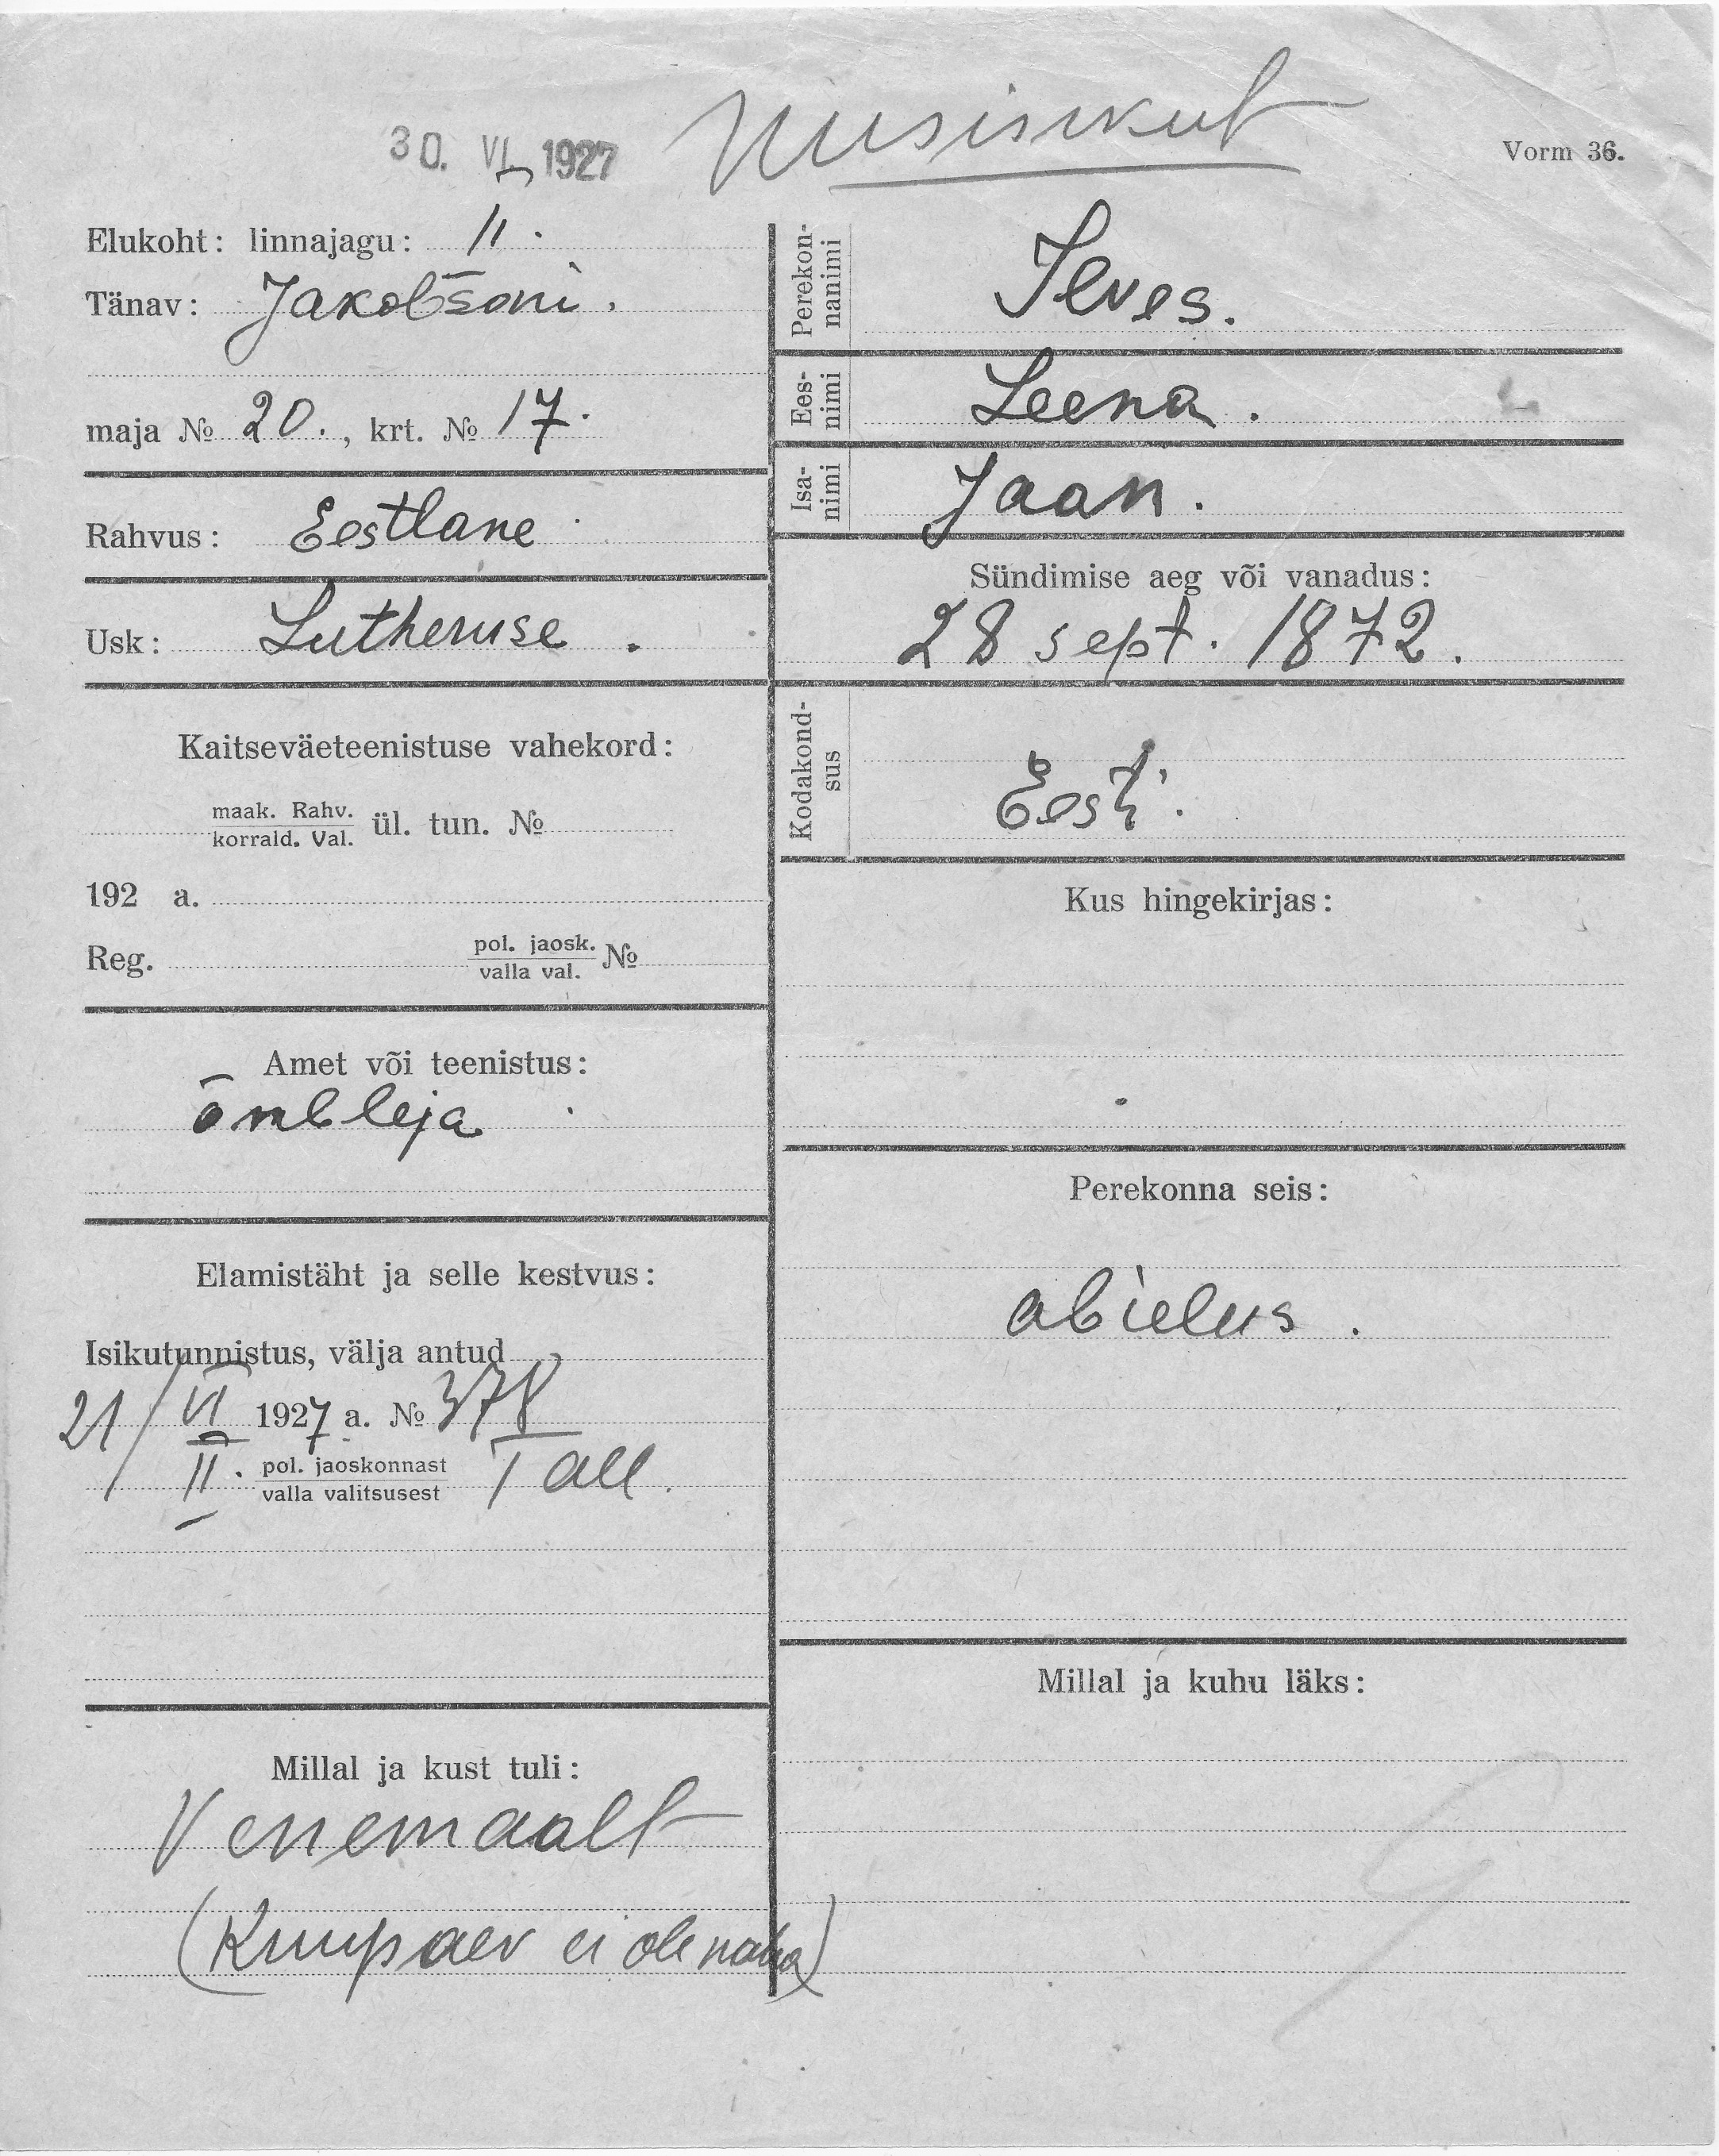 30. VI 1927
Vorm 36.
Elukoht: linnajagu: II.
Tänav: Jakobsoni.
maja № 20., krt. № 17.
Rahvus: Eestlane
Usk: Lutheruse.
Kaitseväeteenistuse vahekord:
maak. Rahv.
korrald. Val. ül. tun. №
192 a.
Reg. pol. jaosk.
valla val. №
Amet või teenistus:
õmbleja
Elamistäht ja selle kestvus:
Isikutunnistus, välja antud
21/VI 1927 a. № 378
II. pol. jaoskonnast
valla valitsusest Tall.
Millal ja kust tuli:
Venemaalt
(Kuupäev ei ole näha)
Perekon-
nanimi
Ilves.
Ees-
nimi
Leena.
Isa-
nimi
Jaan.
Sündimise aeg või vanadus:
28 sept. 1872.
Kodakond-
sus
Eesti.
Kus hingekirjas:
Perekonna seis:
abielus.
Millal ja kuhu läks: